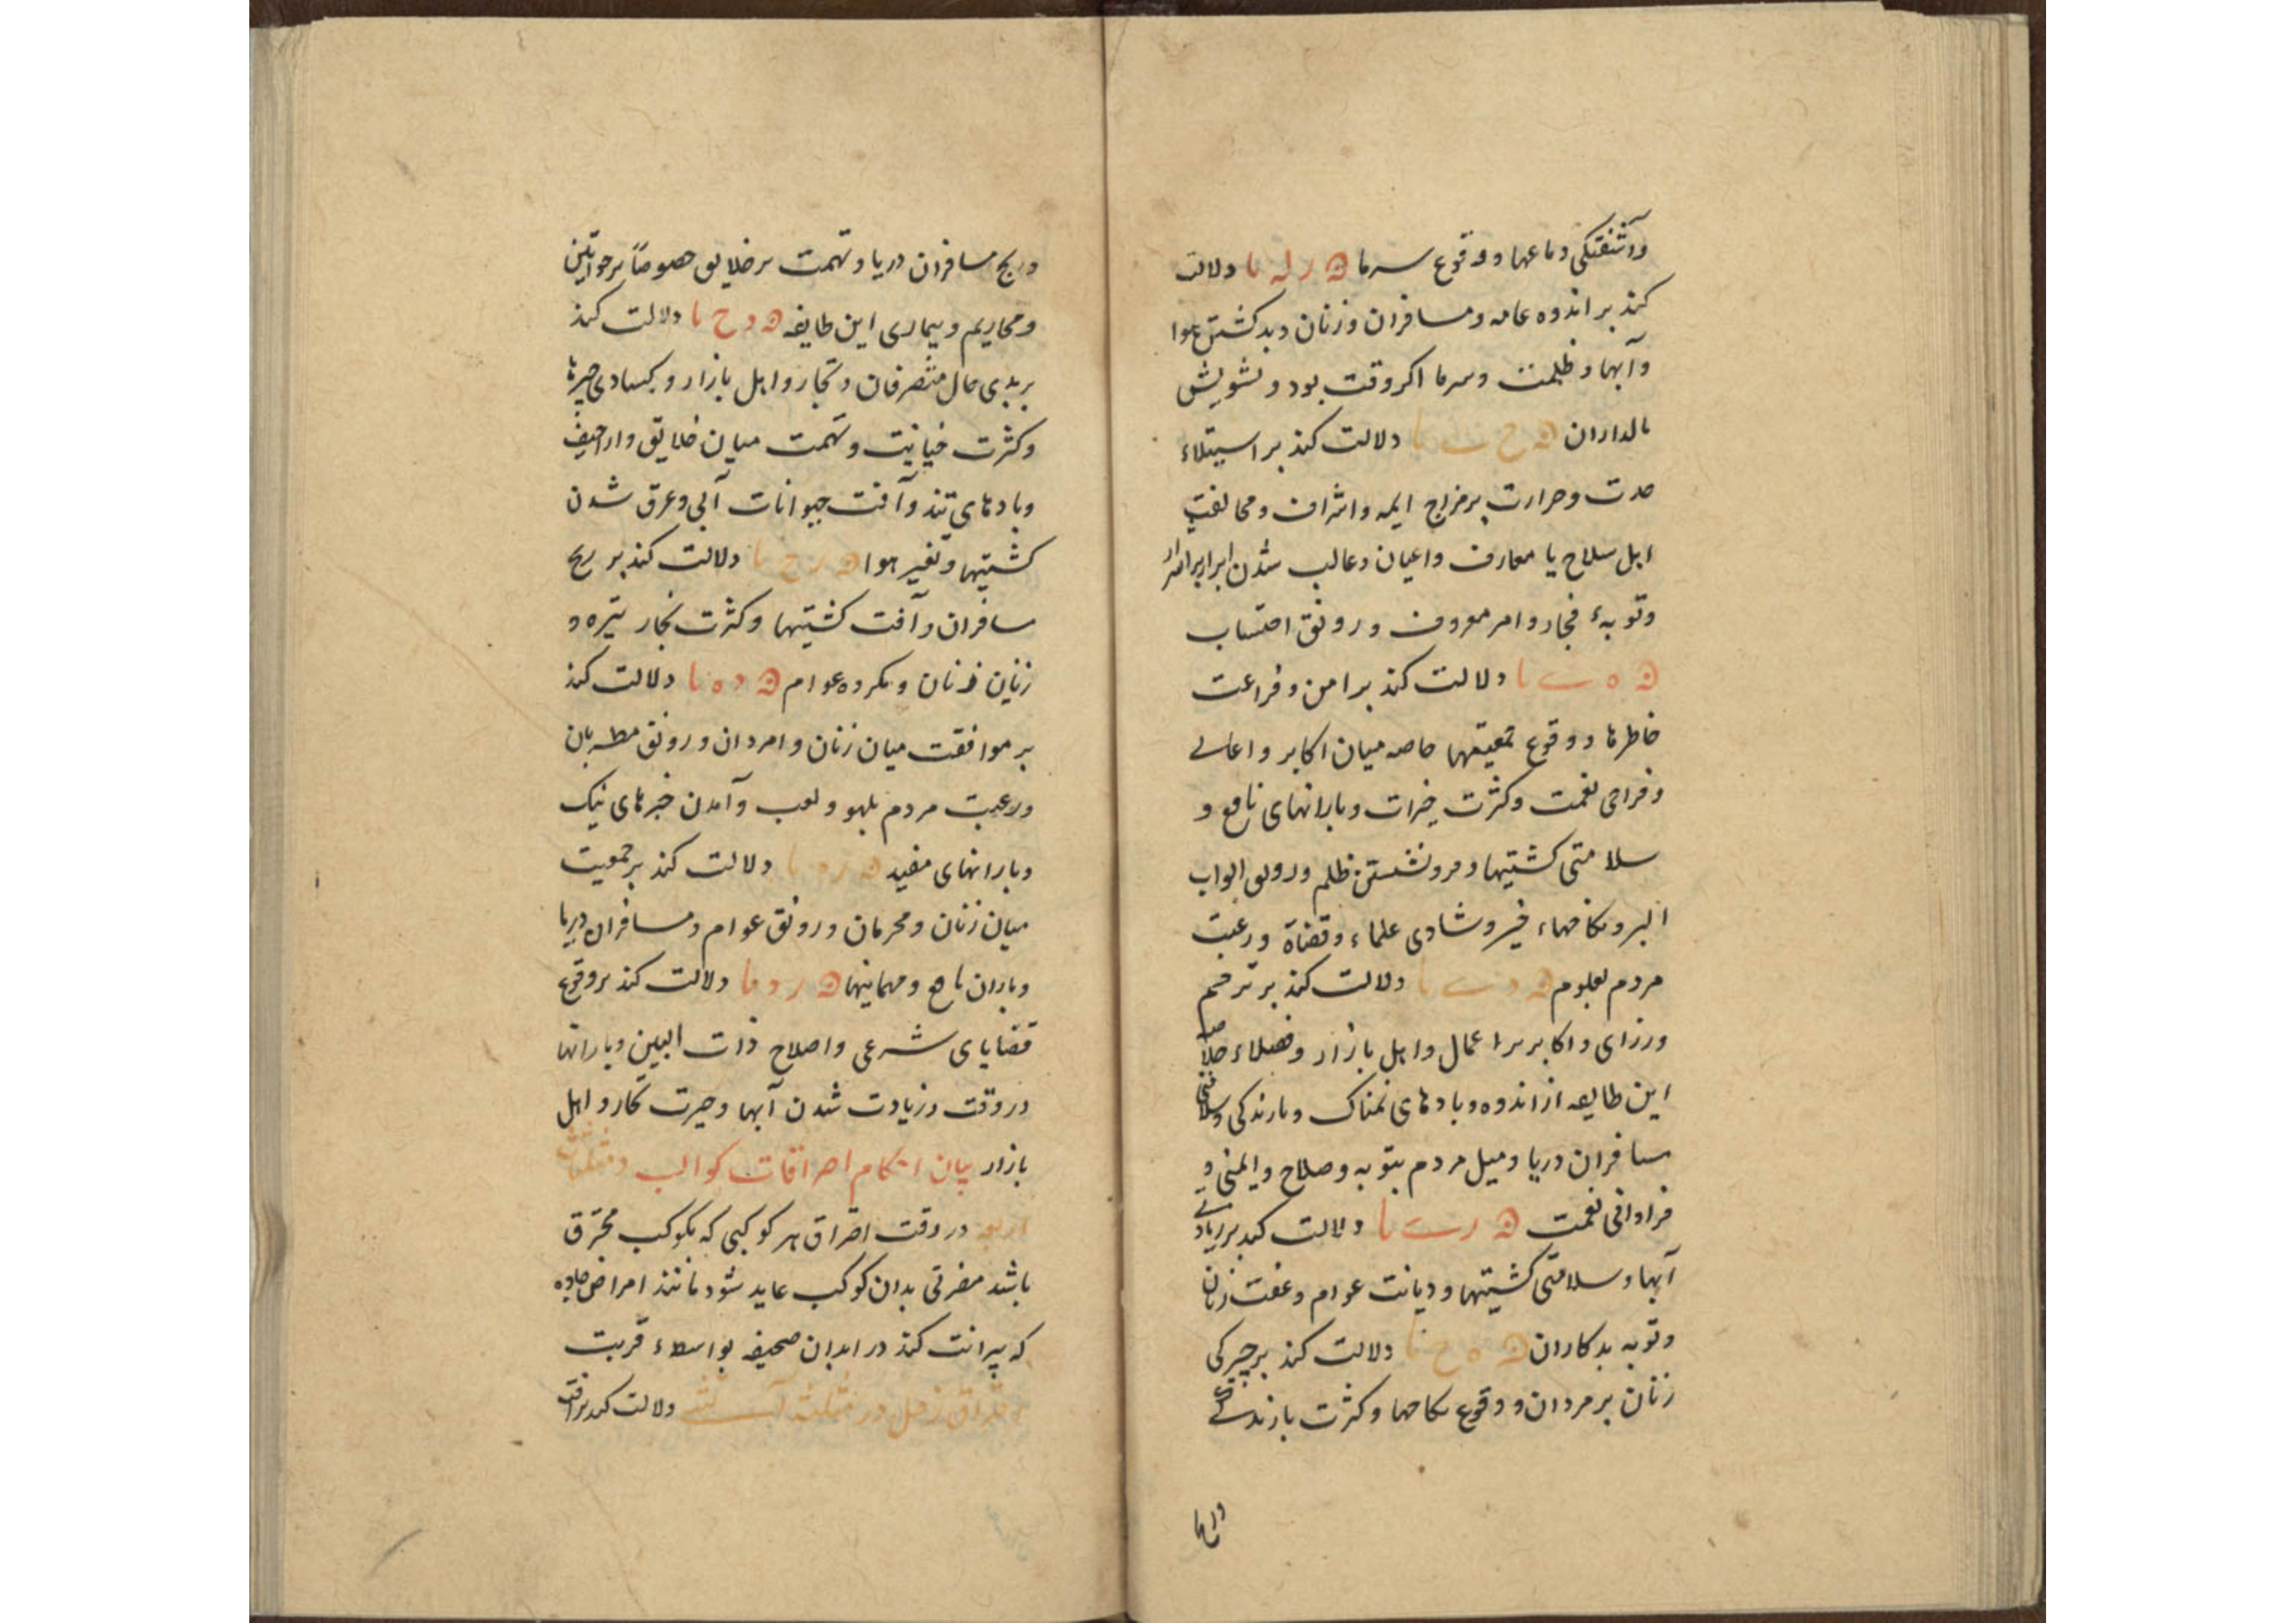 وآشفتگی دماغها ووقوع سرما ه ر له ما دلالت
کند بر اندوه عامه ومسافران وزنان وبد کشتن هوا
وآبها وظلمت وسرما اکر وقت بود وتشویش
مالداران دلالت کند بر استیلاء
حدت وحرارت بر مزاج ایمه واشراف ومخالفت
اهل سلاح با معارف واعیان وغالب شدن ابرار بر اشرار
وتوبهٔ فجار وامر معروف ورونق احتساب
دلالت کند بر امن وفراغت
خاطرها ووقوع جمعیتها خاصه میان اکابر واعالی
وفراخی نعمت وکثرت خیرات وبارانهای نافع و
سلامتی کشتیها وفرو نشستن ظلم ورونق ابواب
البر ونکاحهاء خیر وشادی علماء وقضاة ورغبت
مردم بعلوم دلالت کند بر ترحم
وزرای واکابر بر اعمال واهل بازار وفضلاء وخلاص
این طایفه از اندوه وبادهای نمناک وبارندکی وسلامتی
مسافران دریا ومیل مردم بتوبه وصلاح وایمنی و
فراوانی نعمت دلالت کند بر زیادتی
آبها وسلامتی کشتیها ودیانت عوام وعفت زنان
وتوبه بدکاران دلالت کند بر چیرکی
زنان بر مردان ووقوع نکاحها وکثرت بارندکی
ورنج مسافران دریا وتهمت بر خلایق خصوصاً بر خواتین
ومحاریم وبیماری این طایفه ه د ح ما دلالت کند
بر بدی حال متصرفان وتجار واهل بازار وکسادی چیزها
وکثرت خیانت وتهمت میان خلایق واراجیف
وبادهای تند وآفت حیوانات آبی وغرق شدن
کشتیها وتغیر هوا ه ر ح ما دلالت کند بر رنج
مسافران وآفت کشتیها وکثرت بخار تیره و
زیان زنان ومکروه عوام ه د ه ما دلالت کند
بر موافقت میان زنان وامردان ورونق مطربان
ورغبت مردم بلهو ولعب وآمدن خبرهای نیک
وبارانهای مفید دلالت کند بر جمعیت
میان زنان ومحرمان ورونق عوام ومسافران دریا
وباران نافع ومهمانیها ه ر د ما دلالت کند بر وقوع
قضایای شرعی واصلاح ذات البین وبارانها
در وقت وزیادت شدن آبها وحیرت تجار واهل
بازار بیان احکام احتراقات کواکب
در وقت احتراق هر کوکبی که بکوکب محترق
باشد مضرتی بدان کوکب عاید شود مانند امراض حاده
که سرایت کند در ابدان صحیفه بواسطهٔ قربت
احتراق زحل در مثلثه آتشی دلالت کند بر آفت